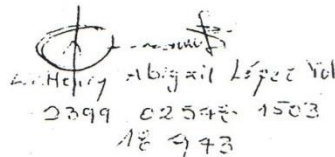 Henry Abigail López
2399 02548 1503
18 943